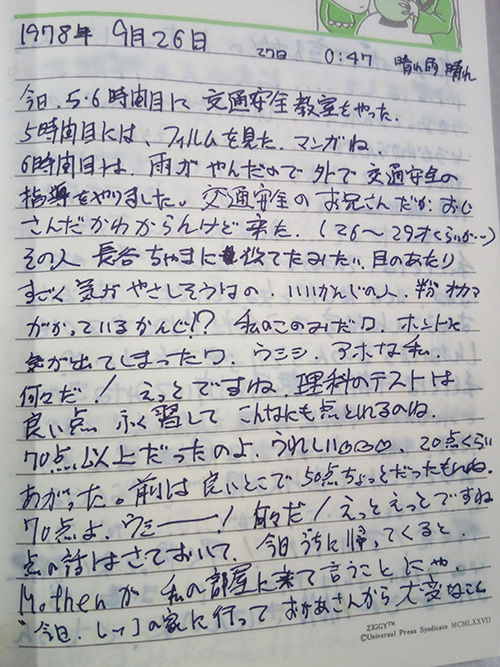 1978年 9月26日 27日 0:47 晴れ雨晴れ
今日、5・6時間目に 交通安全教室をやった。
5時間目には、フィルムを見た、マンガね、
6時間目は、雨が やんだので 外で 交通安全の
指導をやりました。交通安全の お兄さんだか、おじ
さんだかわからんけど 来た。(26〜29才くらいか…)
その人 長谷ちゃまに似てたみたい、目のあたり
すごく 気が やさしそうなの、いいかんじの人、オカマ
がかっているかんじ!? 私のこのみだワ、ホントに
が出てしまったワ、ウシシ、アホな私、
何々だ! えっとですね、理科のテストは
良い点 ふく習して こんなにも点とれるのね、
70点以上だったのよ、うれしい 、20点くらい
あがった。前は 良いとこで 50点ちょっとだったもんね、
70点よ、ウミー! 何々だ! えっとえっとですね
点の話はさておいて、今日 うちに帰ってくると、
Motherが 私の部屋に来て 言うこと にゃ、
"今日、 の家に行って おかあさんから 大変なこと
ZIGGY™
©Universal Press Syndicate MCMLXXVII